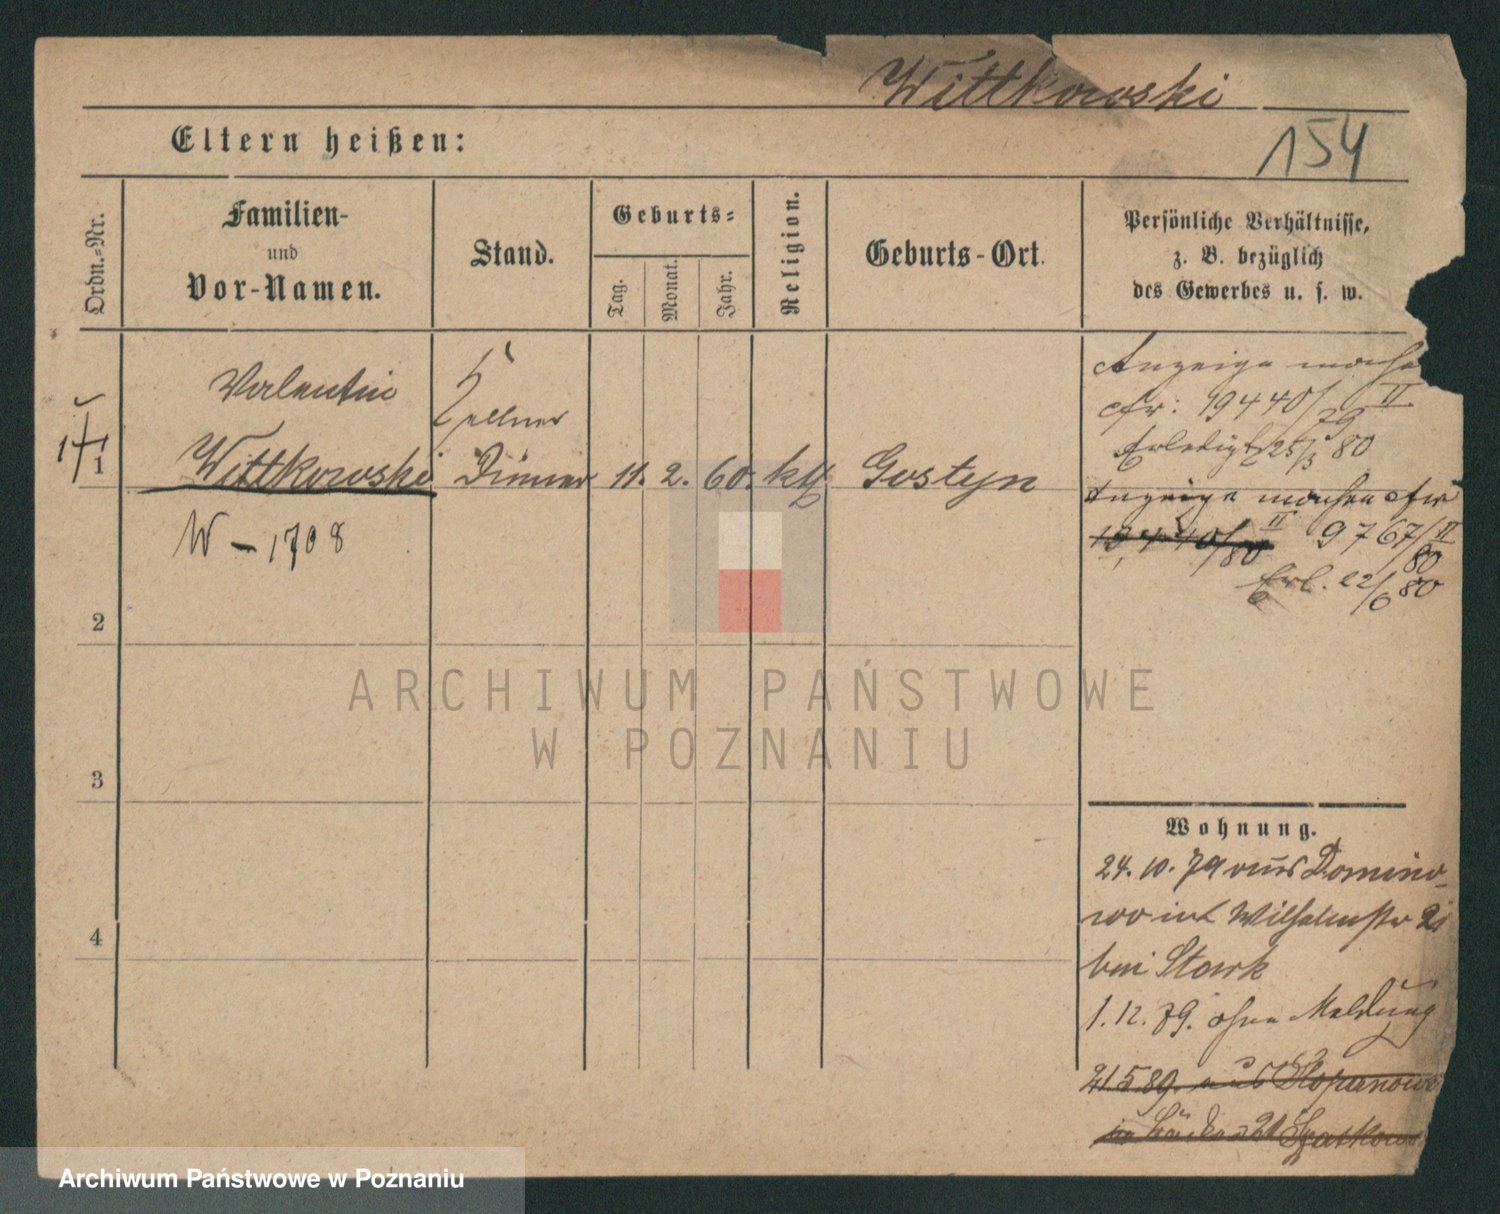 Wittkowski
154
Eltern heißen:
Ordn.-Nr.
Familien-
und
Vor-Namen.
Stand.
Geburts-
Tag.
Monat.
Jahr.
Religion.
Geburts-Ort.
Persönliche Verhältnisse,
z. B. bezüglich
des Gewerbes u. s. w.
1
Valentin
Wittkowski
W – 1708
Kellner
Diener
11. 2. 60. kth
Gostyn
Anzeige mache
cfr: 19440/79 II
Erledigt 25/3 80
Anzeige machen cfr
19440/80 II 9767/80 II
Erl. 22/6 80
2
3
4
Wohnung.
24. 10. 79 aus Domino-
wo in Wilhelmstr 21
bei Stark
1. 12. 79. ohne Meldung
21.5.89. aus
ARCHIWUM PAŃSTWOWE
W POZNANIU
Archiwum Państwowe w Poznaniu